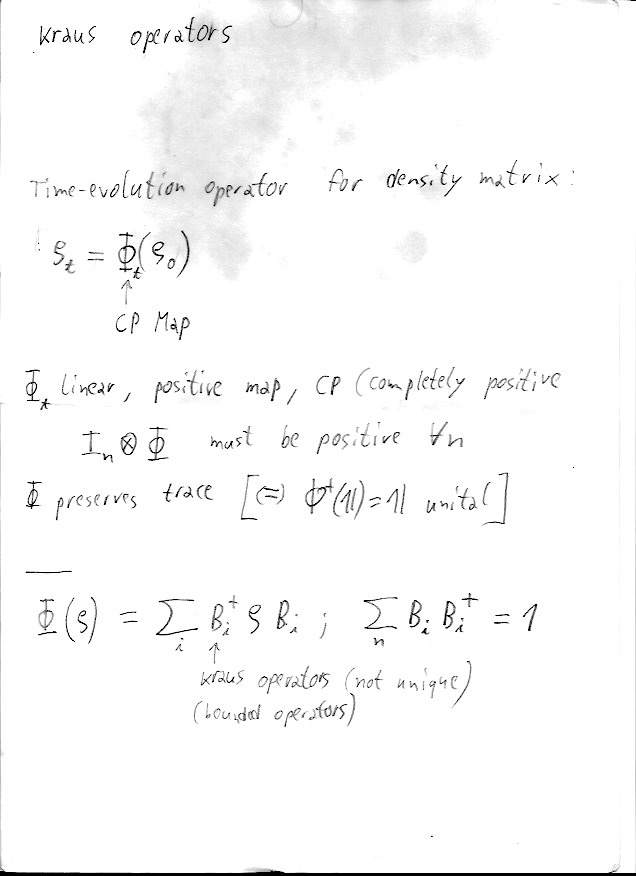 Kraus operators
Time-evolution operator for density matrix:
ρ_t = Φ_t(ρ_0)
↑
CP Map
Φ_t linear, positive map, CP (completely positive
I_n ⊗ Φ must be positive ∀n
Φ preserves trace [⇔ Φ⁺(1l)=1l unital]
Φ(ρ) = ∑_i B_i⁺ ρ B_i ; ∑_n B_i B_i⁺ = 1
↑
Kraus operators (not unique)
(bounded operators)